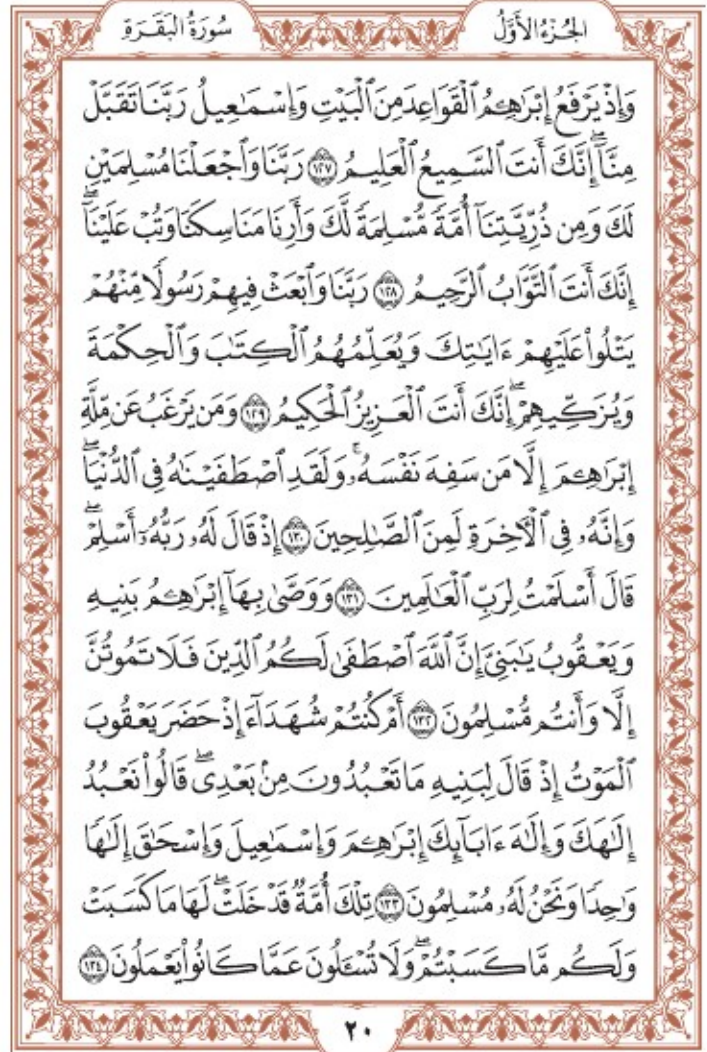 سُورَةُ الْبَقَرَةِ
الجُزْءُ الأَوَّلُ
وَإِذْ يَرْفَعُ إِبْرَٰهِـۧمُ ٱلْقَوَاعِدَ مِنَ ٱلْبَيْتِ وَإِسْمَٰعِيلُ رَبَّنَا تَقَبَّلْ
مِنَّآۖ إِنَّكَ أَنتَ ٱلسَّمِيعُ ٱلْعَلِيمُ ١٢٧ رَبَّنَا وَٱجْعَلْنَا مُسْلِمَيْنِ
لَكَ وَمِن ذُرِّيَّتِنَآ أُمَّةً مُّسْلِمَةً لَّكَ وَأَرِنَا مَنَاسِكَنَا وَتُبْ عَلَيْنَآۖ
إِنَّكَ أَنتَ ٱلتَّوَّابُ ٱلرَّحِيمُ ١٢٨ رَبَّنَا وَٱبْعَثْ فِيهِمْ رَسُولًا مِّنْهُمْ
يَتْلُوا۟ عَلَيْهِمْ ءَايَٰتِكَ وَيُعَلِّمُهُمُ ٱلْكِتَٰبَ وَٱلْحِكْمَةَ
وَيُزَكِّيهِمْۖ إِنَّكَ أَنتَ ٱلْعَزِيزُ ٱلْحَكِيمُ ١٢٩ وَمَن يَرْغَبُ عَن مِّلَّةِ
إِبْرَٰهِـۧمَ إِلَّا مَن سَفِهَ نَفْسَهُۥۚ وَلَقَدِ ٱصْطَفَيْنَٰهُ فِى ٱلدُّنْيَاۖ
وَإِنَّهُۥ فِى ٱلْءَاخِرَةِ لَمِنَ ٱلصَّٰلِحِينَ ١٣٠ إِذْ قَالَ لَهُۥ رَبُّهُۥٓ أَسْلِمْۖ
قَالَ أَسْلَمْتُ لِرَبِّ ٱلْعَٰلَمِينَ ١٣١ وَوَصَّىٰ بِهَآ إِبْرَٰهِـۧمُ بَنِيهِ
وَيَعْقُوبُ يَٰبَنِىَّ إِنَّ ٱللَّهَ ٱصْطَفَىٰ لَكُمُ ٱلدِّينَ فَلَا تَمُوتُنَّ
إِلَّا وَأَنتُم مُّسْلِمُونَ ١٣٢ أَمْ كُنتُمْ شُهَدَآءَ إِذْ حَضَرَ يَعْقُوبَ
ٱلْمَوْتُ إِذْ قَالَ لِبَنِيهِ مَا تَعْبُدُونَ مِنۢ بَعْدِىۖ قَالُوا۟ نَعْبُدُ
إِلَٰهَكَ وَإِلَٰهَ ءَابَآئِكَ إِبْرَٰهِـۧمَ وَإِسْمَٰعِيلَ وَإِسْحَٰقَ إِلَٰهًا
وَٰحِدًا وَنَحْنُ لَهُۥ مُسْلِمُونَ ١٣٣ تِلْكَ أُمَّةٌ قَدْ خَلَتْۖ لَهَا مَا كَسَبَتْ
وَلَكُم مَّا كَسَبْتُمْۖ وَلَا تُسْـَٔلُونَ عَمَّا كَانُوا۟ يَعْمَلُونَ ١٣٤
٢٠